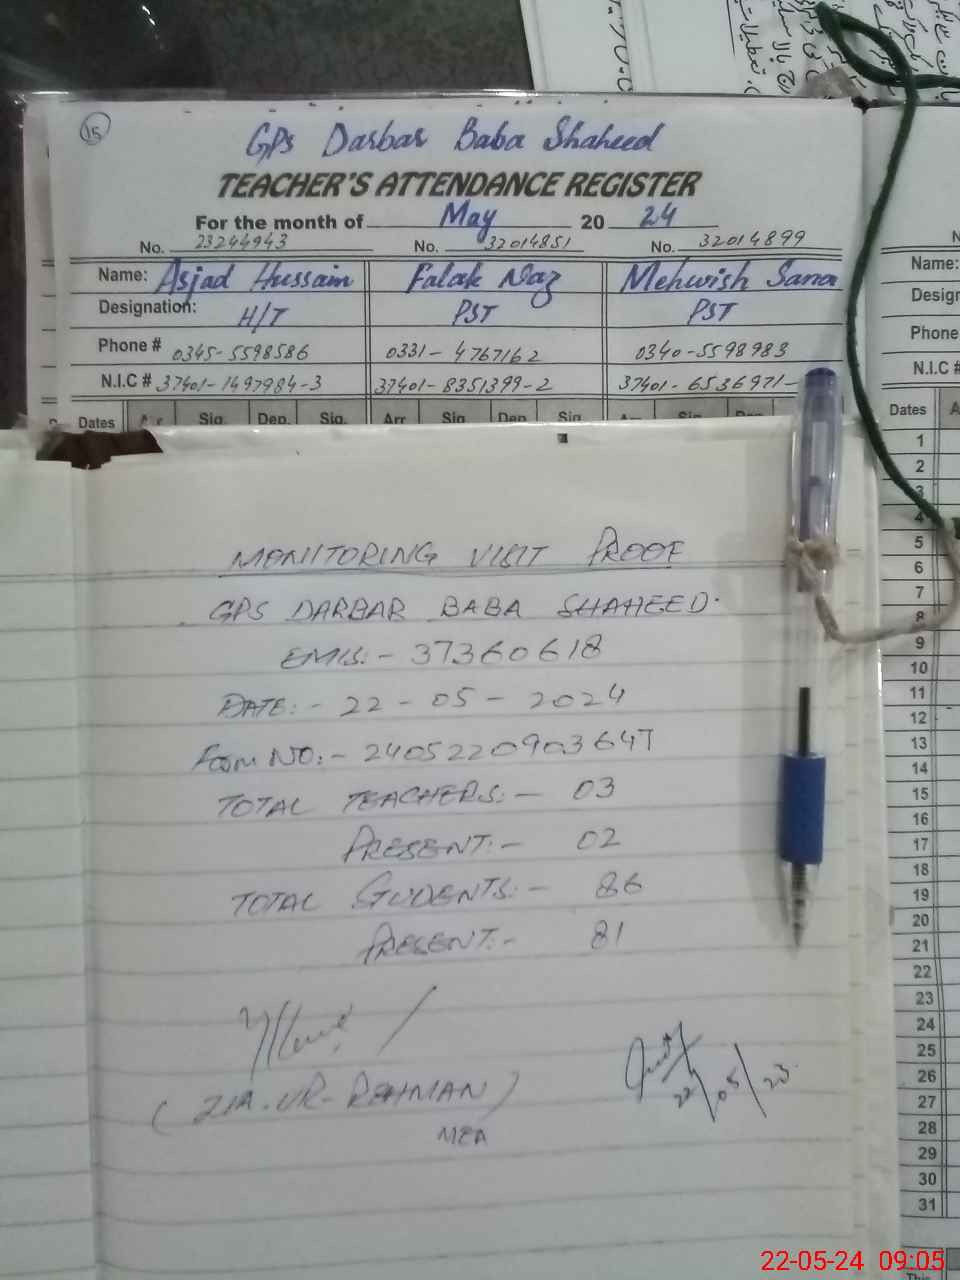 15
GPs Darbar Baba Shaheed
TEACHER'S ATTENDANCE REGISTER
For the month of May 20 24
No. 23244943 No. 32014851 No. 32014899
Name: Asjad Hussain Falak Naz Mehwish Sana
Designation: H/T PST PST
Phone # 0345-5598586 0331-4767162 0340-5598983
N.I.C # 37401-1497984-3 37401-8351399-2 37401-6536971-
Dates Arr Sig. Dep. Sig. Arr Sig. Dep Sig. Sig.
MONITORING VISIT PROOF
GPS DARBAR BABA SHAHEED.
EMIS:- 37360618
DATE:- 22-05-2024
FORM NO:- 2405220903647
TOTAL TEACHERS:- 03
PRESENT:- 02
TOTAL STUDENTS:- 86
PRESENT:- 81
(ZIA-UR-REHMAN)
MEA
22/05/23
Name:
Desig
Phone #
N.I.C #
Dates A
1
2
3
4
5
6
7
8
9
10
11
12
13
14
15
16
17
18
19
20
21
22
23
24
25
26
27
28
29
30
31
22-05-24 09:05